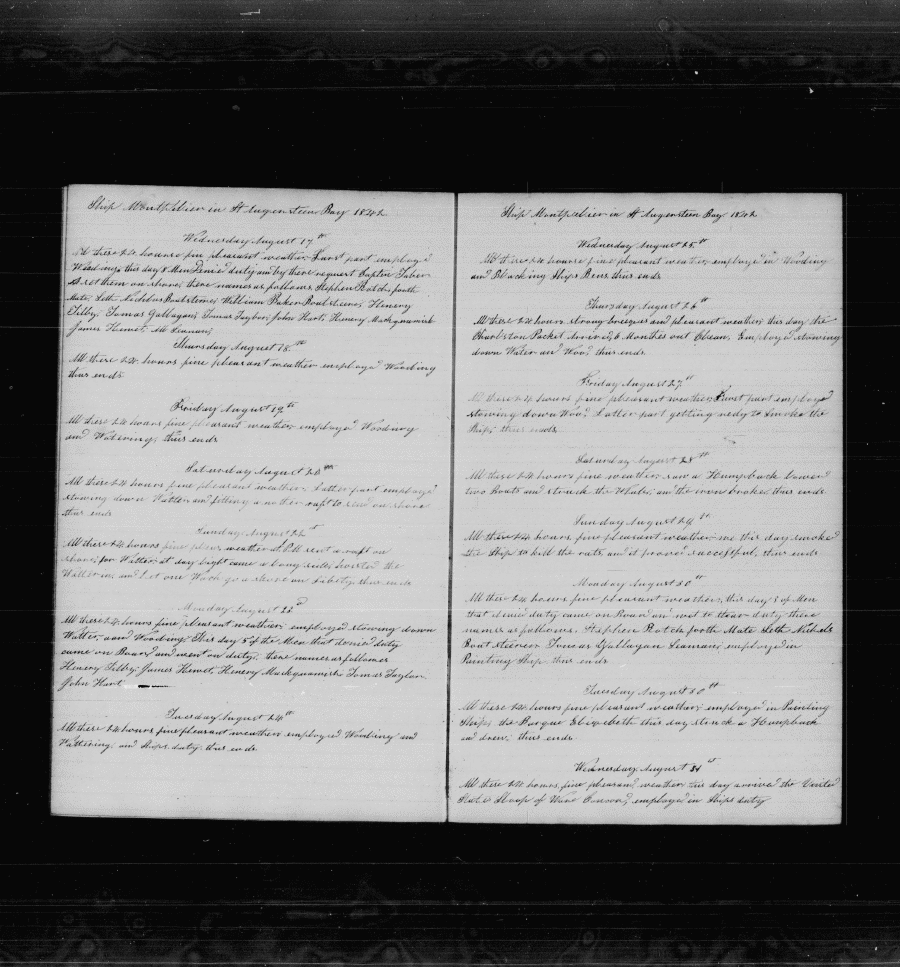 Ship Montpelier in St Augensteen Bay 1842
Wednesday August 17th
All these 24 hours fine pleasant weather, Furst part employed
Wooding, this day 8 Men Denied duty and by there request Captin Taber
set them on shore, there names as follows, Stephen Rotch forth
Mate, Seth Nichols Boatsteerer, William Baker Boatsteerer, Henery
Tilby, Tomas Gallagan, Tomas Taylor, John Hart, Henery Mackquamish
James Hemet, all Seaman,
Thursday August 18th
All these 24 hours fine pleasant weather employed Wooding
thus ends
Friday August 19th
All these 24 hours fine pleasant weather, employed Wooding
and Watering, thus ends
Saturday August 20th
All these 24 hours fine pleasant weather, Latter part employed
stowing down Watter and fitting a nother raft to send on shore
thus ends
Sunday August 21st
All these 24 hours fine pleas weather at PM sent a raft on
shore, for Watter, at day light came a long side, hoisted the
Watter in and Let one Wach go a shore on Liberty thus ends
Monday August 22d
All these 24 hours fine pleasant weather, employed stowing down
Watter, and Wooding, This day 5 of the Men that denied duty
came on Board and went on duty, there names as follows
Henery Tilby, James Hemet, Henery Mackquamish Tomas Taylor
John Hart
Tuesday August 24th
All these 24 hours fine pleasant weather, employed Wooding and
Wattering, and Ships duty thus ends
Ship Montpelier in St Augensteen Bay 1842
Wednesday August 25th
All these 24 hours fine pleasant weather, employed in Wooding
and Blacking Ships Bens thus ends
Thursday August 26th
All these 24 hours strong breezes and pleasant weather, this day the
Charlston Packet arrived, 6 Monthes out Clean, Employed stowing
down Water and Wood thus ends
Friday August 27th
All these 24 hours fine pleasant weather, Furst part employed
stowing down Wood, Latter part getting redy to smoke the
Ship, thus ends
Saturday August 28th
All these 24 hours fine weather, saw a Humpback Lowerd
two Boats and struck the Whale, and the iron broked, thus ends
Sunday August 29th
All these 24 hours, fine pleasant weather, we this day smoked
the Ship to kill the rats, and it proved successful, thus ends
Monday August 30th
All these 24 hours fine pleasant weather, this day 3 of Men
that denied duty came on Board and wet to thear duty there
names as follows, Stephen Rotch forth Mate Seth Nichols
Boatsteerer Tomas Gallagan Seaman, employed in
Painting Ship thus ends
Tuesday August 30th
All these 24 hours fine pleasant weather, employed in Painting
Ship, the Barque Elizebeth this day struck a Humpback
and drew, thus ends
Wednesday August 31st
All these 24 hours, fine pleasant weather this day arrived the United
States Sloop of Ware employed in Ships duty